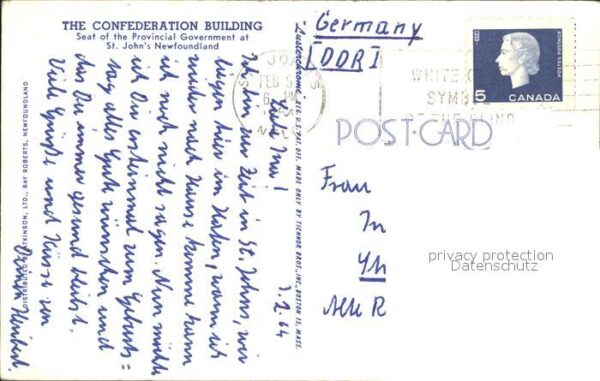 THE CONFEDERATION BUILDING
Seat of the Provincial Government at
St. John's Newfoundland
3.2.64
Liebe Ina!
Ich bin zur Zeit in St. Johns, wir
liegen hier im Hafen, wann ich
wieder nach Hause komme kann
ich noch nicht sagen. Nun möchte
ich Dir ersteinmal zum Geburts=
tag alles Gute wünschen und
das Du immer gesund bleibst.
Viele Grüße und Küsse von
Deinen Herbert.
ATKINSON, LTD., BAY ROBERTS, NEWFOUNDLAND
"Lusterchrome" REG. U.S. PAT. OFF. MADE ONLY BY TICHNOR BROS., INC., BOSTON 15, MASS.
Germany
[DDR]
ST. JOHN'S
FEB 5
6 PM
NFLD.
WHITE C
SYMB
OF THE BLIND
5 CANADA
POSTES POSTAGE
POST CARD
Frau
In
Yh
privacy protection
Datenschutz